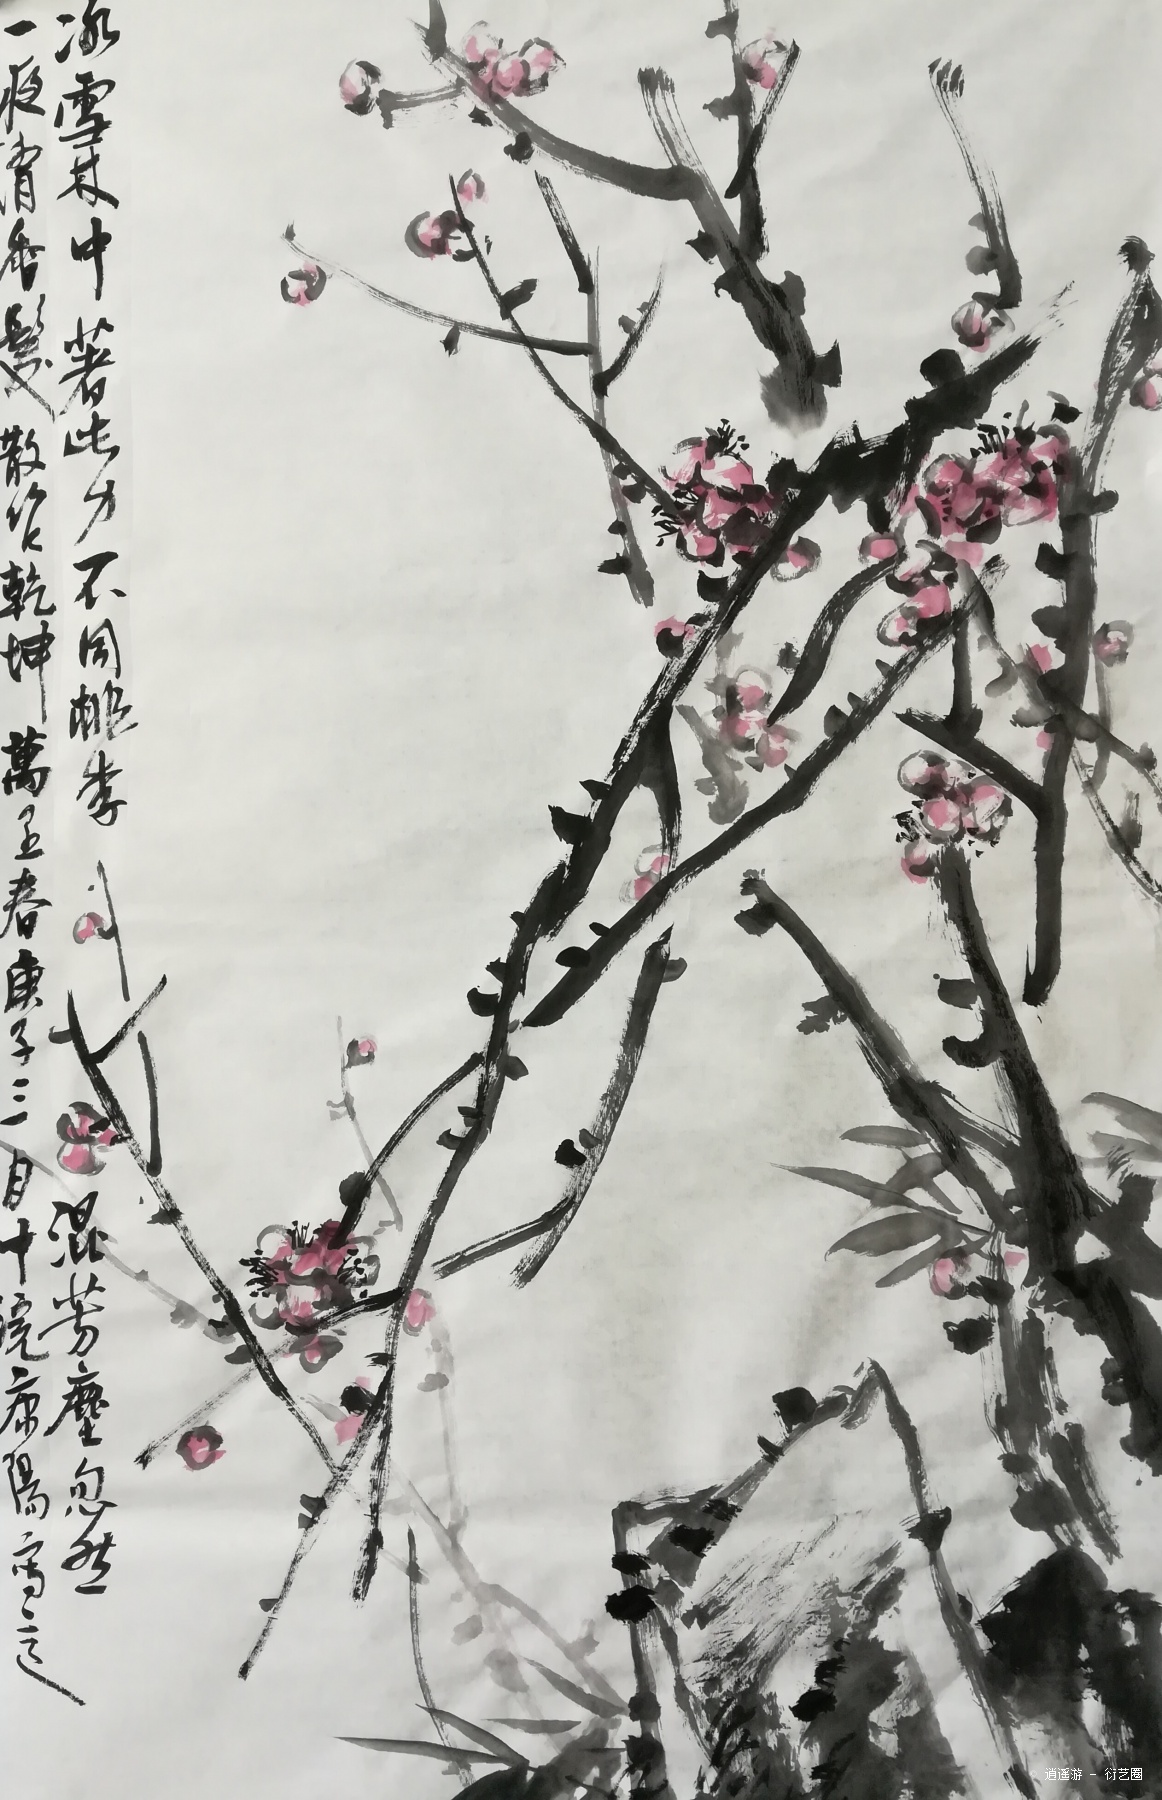 冰雪林中著此身不同桃李混芳塵忽然
一夜清香髮散作乾坤萬里春庚子三月中浣康陽
逍遥游 - 衍艺圈